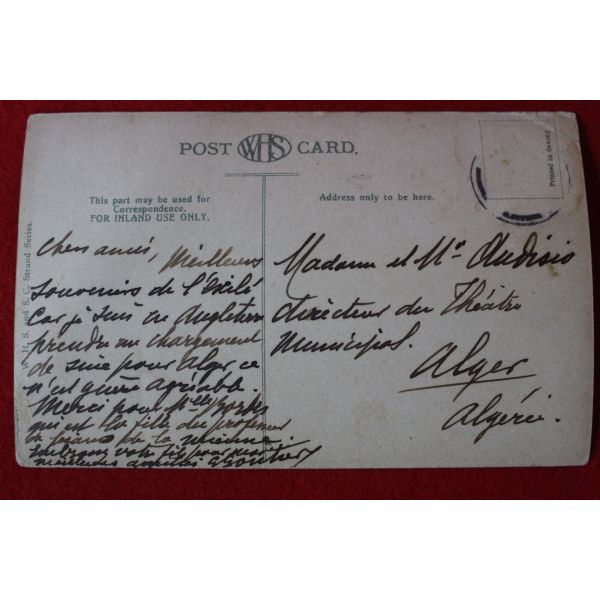 POST WHS CARD.
This part may be used for
Correspondence.
FOR INLAND USE ONLY.
Address only to be here.
Printed in Saxony
W. H. S. and S. C. Strand Series.
Chers amis, Meilleurs
souvenirs de l'Exilé
car je suis en Angleterre
prendre un chargement
de pour Alger, ce
n'est guère agréable.
Merci pour Mlle
qui est la fille du professeur
de piano de la mienne.
Embrassez votre fils pour moi
meilleures amitiés
Madame et Mr Audisio
directeur du Théâtre
Municipal.
Alger
Algérie.